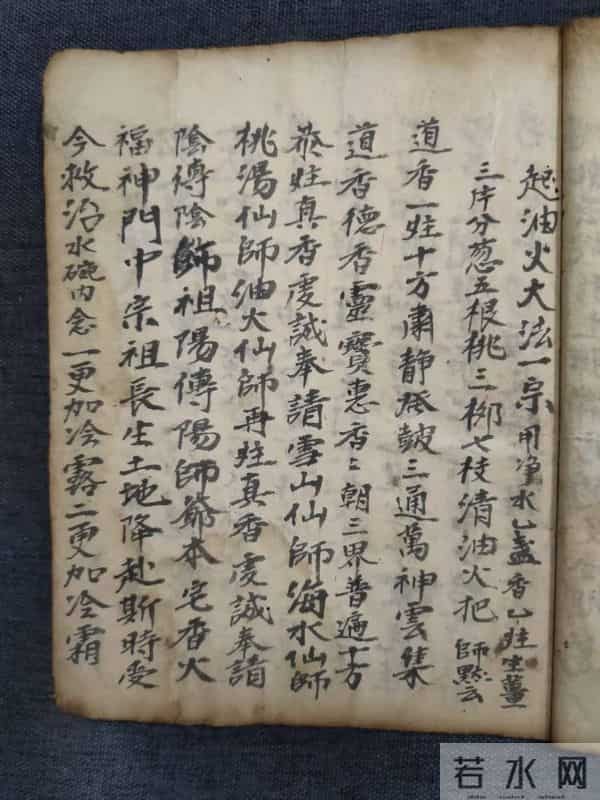 起油火大法一宗用净水乚盏香乚炷生薑
三片分葱五根桃三柳七枝清油火把師默云
道香一炷十方肅静發鼓三通萬神雲集
道香德香靈寶惠香〻朝三界普遍十方
炷真香虔誠奉請雪山仙師海水仙師
桃湯仙師油火仙師再炷真香虔誠奉請
陰傳陰師祖陽傳陽師爺本宅香火
福神門中宗祖長生土地降赴斯時受
今救治水碗内念一更加冷露二更加冷霜
若水网